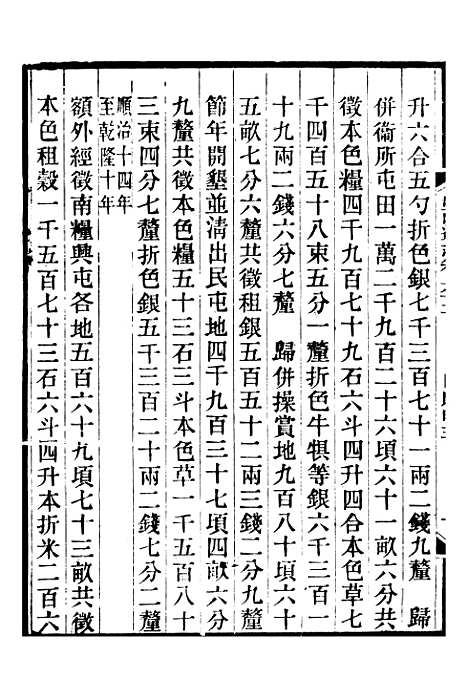 升六合五勺折色銀七千三百七十一兩二錢九釐　歸
併衞所屯田一萬二千九百二十六頃六十一畝六分共
徵本色糧四百七十九石四升四合本色草七
千四百五十八束五分一釐折色牛犋等銀六千三百一
十九兩二錢六分七釐　歸併操賞地九百八十頃六十
五畝七分六釐共徵租銀五百五十二兩三錢二分九釐
節年開墾並清出民屯地四千九百三十七頃四畝六分
九釐共徵本色糧五十三石三斗本色草一千五百八十
三束四分七釐折色銀五千三百二十兩二錢七分二釐
順治十四年
至乾隆十年
額外經徵南糧興屯各地五百六十九頃七十三畝共徵
本色租穀一千五百七十三石六斗四升本折米二百六